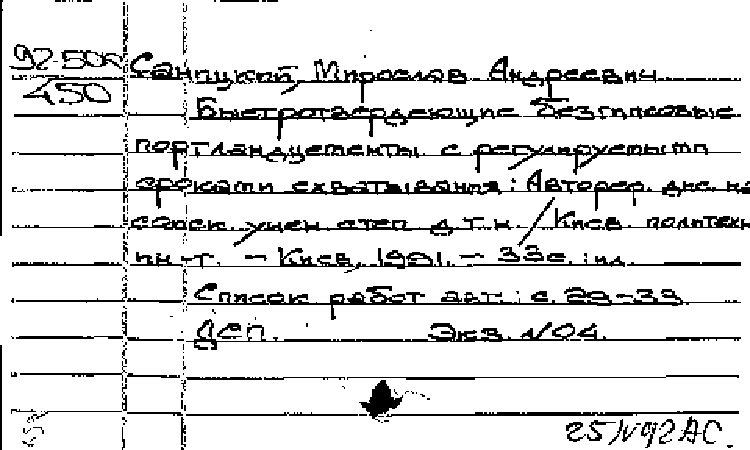 92-50
450
Саницкий, Мирослав Андреевич
Быстротвердеющие безгипсовые
портландцементы с регулируемыми
сроками схватывания: Автореф. дис. на
соиск. учен. степ. д.т.н. / Киев. политехн.
ин-т. – Киев, 1991. – 33с.: ил.
Список работ авт.: с. 29–33.
ДСП. Экз. №04.
25/IV92АС.